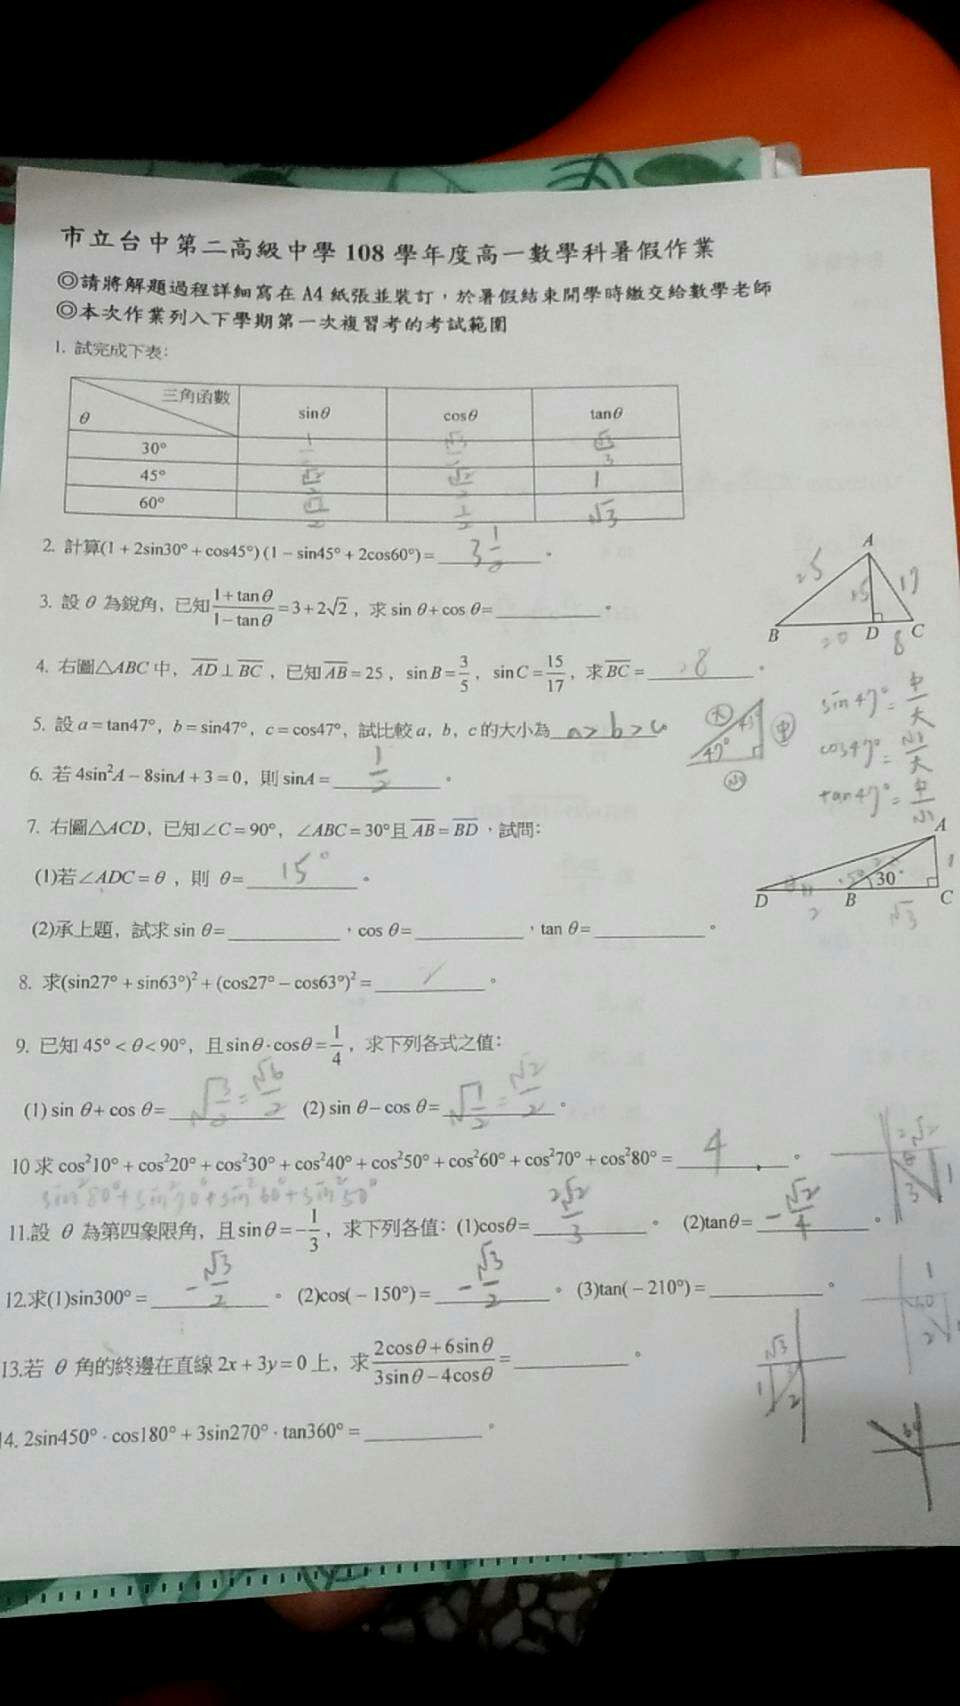 市立台中第二高級中學 108 學年度高一數學科暑假作業
◎請將解題過程詳細寫在 A4 紙張並裝訂，於暑假結束開學時繳交給數學老師
◎本次作業列入下學期第一次複習考的考試範圍
1. 試完成下表：
三角函數 θ sinθ cosθ tanθ
30° 1/ √3/ √3/3
45° √2/2 √2/2 1
60° √3/2 1/2 √3
2. 計算(1 + 2sin30° + cos45°) (1 − sin45° + 2cos60°) = 3 1/ 。
3. 設 θ 為銳角，已知 (1 + tanθ)/(1 − tanθ) = 3 + 2√2，求 sin θ + cos θ = ______。
A
25 15 17
B 20 D 8 C
4. 右圖△ABC 中，AD ⊥ BC，已知 AB = 25，sin B = 3/5，sin C = 15/17，求 BC = 28 。
5. 設 a = tan47°，b = sin47°，c = cos47°，試比較 a，b，c 的大小為 a > b > c
大 43° 中 47° 小
sin47° = 中/大
cos47° = 小/大
tan47° = 中/小
6. 若 4sin²A − 8sinA + 3 = 0，則 sinA = 1/2 。
7. 右圖△ACD，已知∠C = 90°，∠ABC = 30°且 AB = BD，試問：
A
1
30°
D B C
2 √3
(1)若∠ADC = θ，則 θ = 15° 。
(2)承上題，試求 sin θ = ______，cos θ = ______，tan θ = ______。
8. 求(sin27° + sin63°)² + (cos27° − cos63°)² = ______。
9. 已知 45° < θ < 90°，且 sinθ·cosθ = 1/4，求下列各式之值：
(1) sin θ + cos θ = √(3/2) = √6/2 (2) sin θ − cos θ = √(1/2) = √2/2 。
10 求 cos²10° + cos²20° + cos²30° + cos²40° + cos²50° + cos²60° + cos²70° + cos²80° = 4 。
sin²80° + sin²70° + sin²60° + sin²50°
2√2 θ 1 3
11.設 θ 為第四象限角，且 sinθ = −1/3，求下列各值：(1)cosθ = 2√2/3 。 (2)tanθ = −√2/4 。
12.求(1)sin300° = −√3/2 。 (2)cos(− 150°) = −√3/2 。 (3)tan(− 210°) = ______。
1 60 2
13.若 θ 角的終邊在直線 2x + 3y = 0 上，求 (2cosθ + 6sinθ)/(3sinθ − 4cosθ) = ______。
√3 1 2
14. 2sin450° · cos180° + 3sin270° · tan360° = ______。